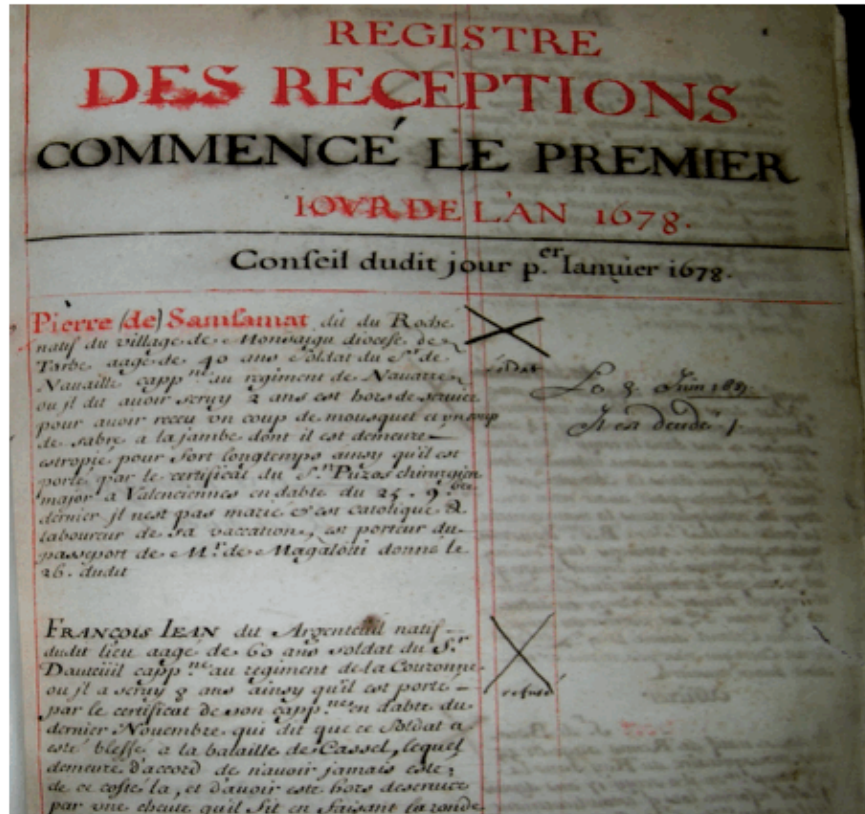 REGISTRE
DES RECEPTIONS
COMMENCÉ LE PREMIER
IOVR DE L'AN 1678.
Conseil dudit jour p.er Ianuier 1678.
Pierre (de) Samsamat dit du Roche
natif du village de Monsaigu diocese de
Tarbe aagé de 40 ans soldat du S.r de
Nauaille capp.ne au regiment de Nauarre
ou jl dit auoir seruy 2 ans est hors de seruice
pour auoir receu vn coup de mousquet et vn coup
de sabre a la jambe dont il est demeuré
estropié pour fort longtemps ainsy qu'il est
porté par le certificat du S.r Puzos chirurgien
major a Valenciennes en datte du 25. 9.bre
dernier jl n'est pas marié et est catolique &
laboureur de sa vaccation, est porteur du
passeport de M.r de Magalotti donné le
26. dudit
soldat
Le 8 Juin
Il est
FRANÇOIS IEAN du Argenteuil natif
dudit lieu aagé de 60 ans soldat du S.r
Dauteüil capp.ne au regiment de la Couronne
ou jl a seruy 8 ans ainsy qu'il est porté
par le certificat de son capp.ne en datte du
dernier Nouembre qui dit que ce soldat a
esté blessé a la bataille de Cassel, lequel
demeure d'accord de n'auoir jamais esté
de ce costé la, et d'auoir esté hors de seruice
par vne cheute qu'il fit en faisant la ronde
refusé